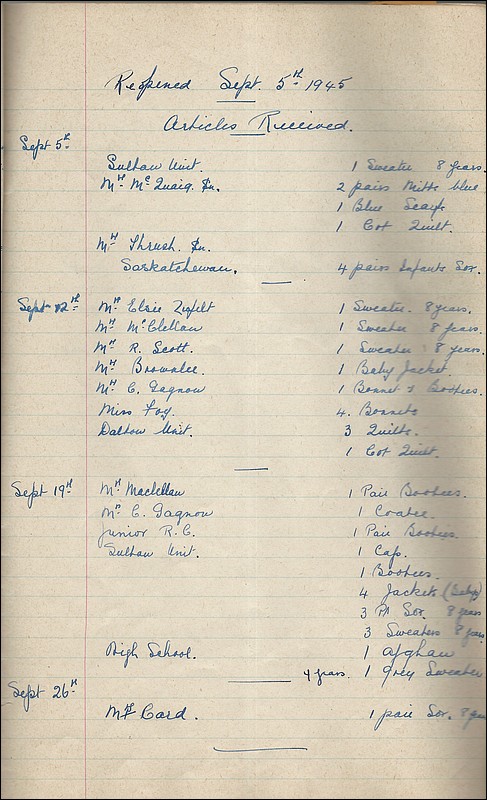 Reopened Sept. 5th 1945
Articles Received.
Sept 5th
Sultan Unit. 1 Sweater 8 years.
Mrs McQuaig. Sn. 2 pairs Mitts blue
1 Blue Scarf
1 Cot Quilt.
Mrs Thrush. Sn.
Saskatchewan. 4 pairs Infants Sox.
Sept 12th Mrs Elsie 1 Sweater. 8 years.
Mrs McClellan 1 Sweater 8 years.
Mrs R. Scott. 1 Sweater 8 years.
Mrs Brownlee. 1 Baby Jacket.
Mrs C. Gagnon 1 Bonnet & Bootees.
Miss Foy. 4. Bonnets
Dalton Unit. 3 Quilts.
1 Cot Quilt.
Sept 19th Mrs Maclellan 1 Pair Bootees.
Mrs C. Gagnon 1 Coatee.
Junior R.C. 1 Pair Bootees.
Sultan Unit. 1 Cap.
1 Bootees.
4 Jackets (Baby)
3 Pr Sox. 8 years
3 Sweaters 8 years
High School. 1 afghan
4 years. 1 grey Sweater
Sept 26th
Mrs Card. 1 pair Sox. 8